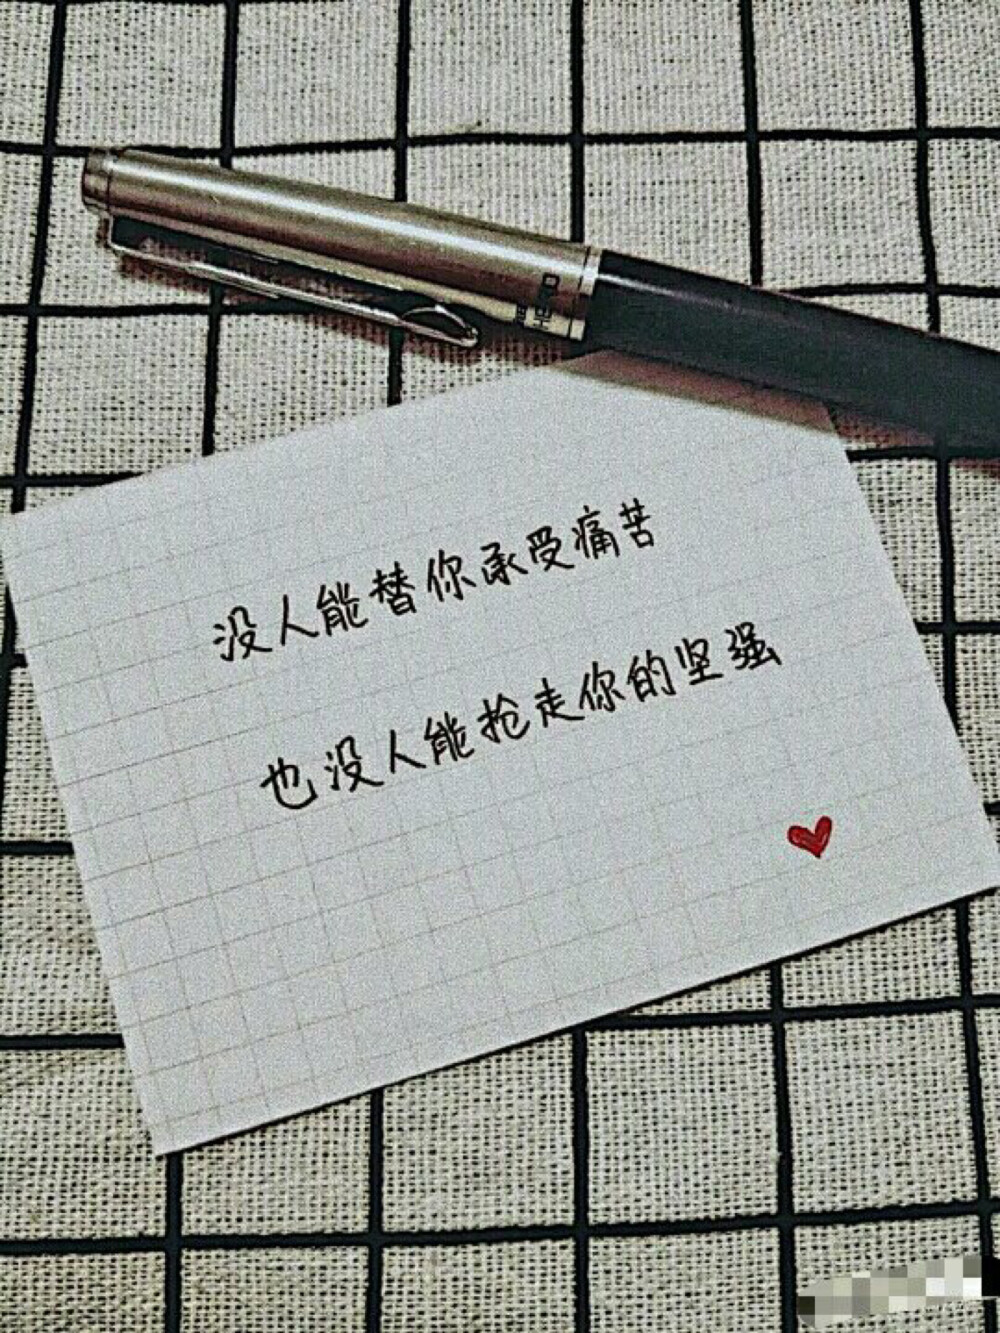 HERO
没人能替你承受痛苦
也没人能抢走你的坚强